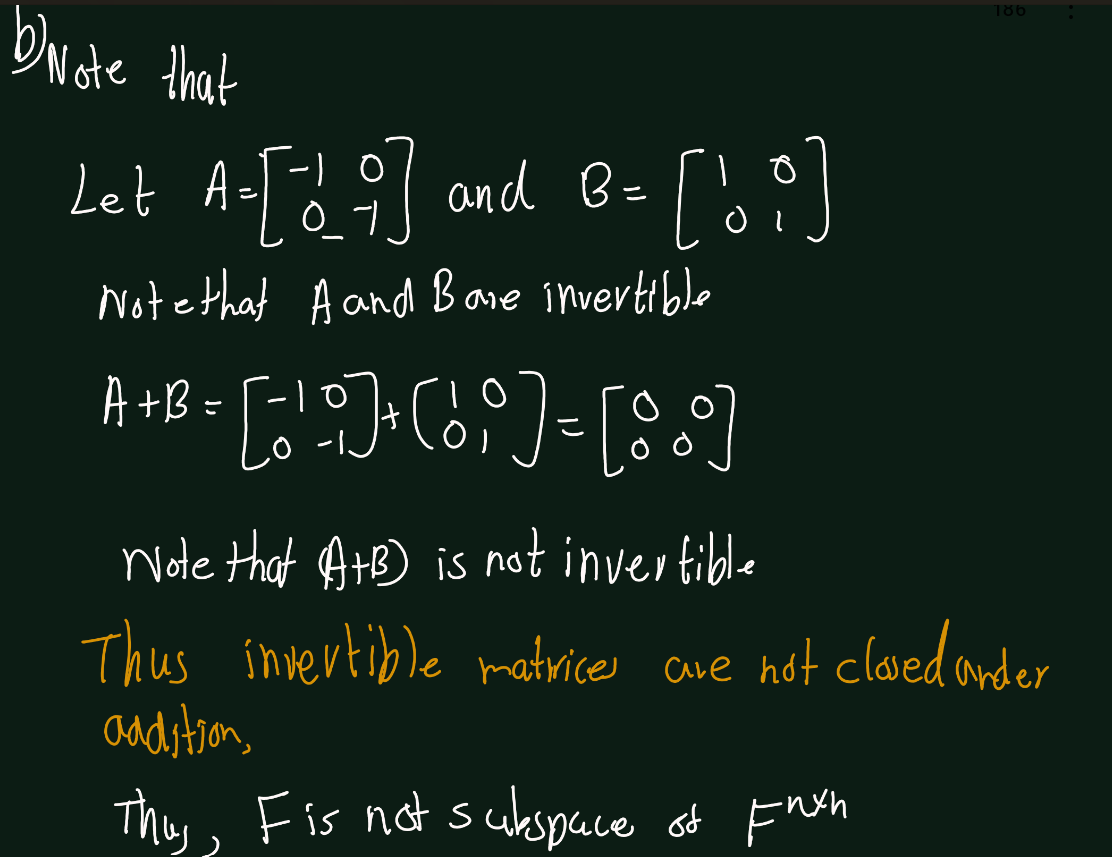 186
b) Note that
Let A = [-1 0; 0 -1] and B = [1 0; 0 1]
Note that A and B are invertible
A+B = [-1 0; 0 -1] + [1 0; 0 1] = [0 0; 0 0]
Note that (A+B) is not invertible
Thus invertible matrices are not closed under
addition,
Thus, F is not subspace of F^nxn